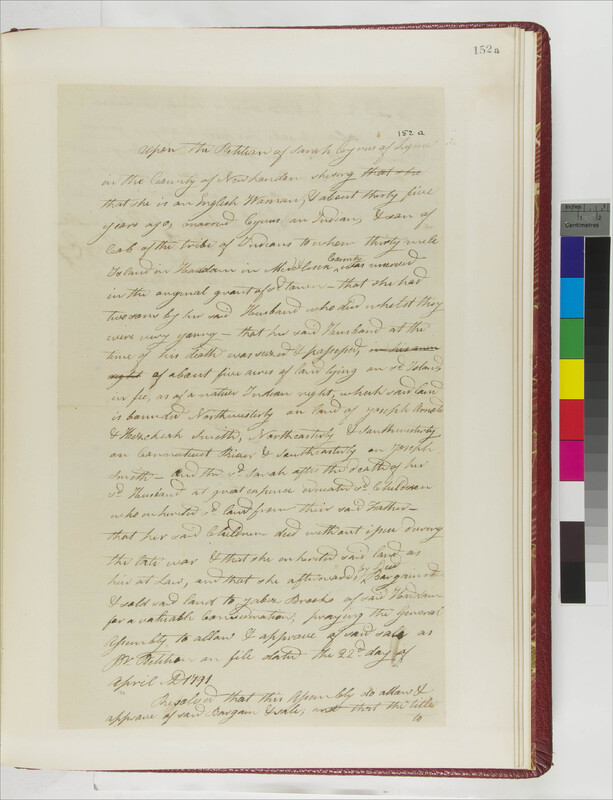 152a
152 a
Upon the Petition of Sarah Cyrus of Lyme
in the County of New London shewing that she
that she is an English Woman, & about thirty five
years ago, married Cyrus an Indian, & son of
Cob of the tribe of Indians to whom thirty mile
Island in Haddam in Middlesex County was reserved
in the original grant of sd. town - that she had
two sons by her said Husband who died whilst they
were very young - that her said Husband at the
time of his death was seized & possessed, in his own
right of about five acres of land lying on sd. Island
in fee, as of a native Indian right, which said land
is bounded Northwesterly on land of Joseph Arnold
& Hezekiah Smith, Northeasterly & Southwesterly
on Connecticut River & Southeasterly on Joseph
Smith - And the sd. Sarah after the death of her
sd. Husband at great expence educated sd. Children
who inherited sd. land from their said Father -
that her said Children died without issue during
the late war & that she inherited said land as
heir at Law, and that she afterwards by Deed Bargained
& sold said land to Jabez Brooks of said Haddam
for a valuable Consideration, praying the General
Assembly to allow & approve of said sale as
Pr. Petition on file dated the 22d. day of
April AD 1791
Resolved that this Assembly do allow &
approve of said Bargain & sale, and that the title
to